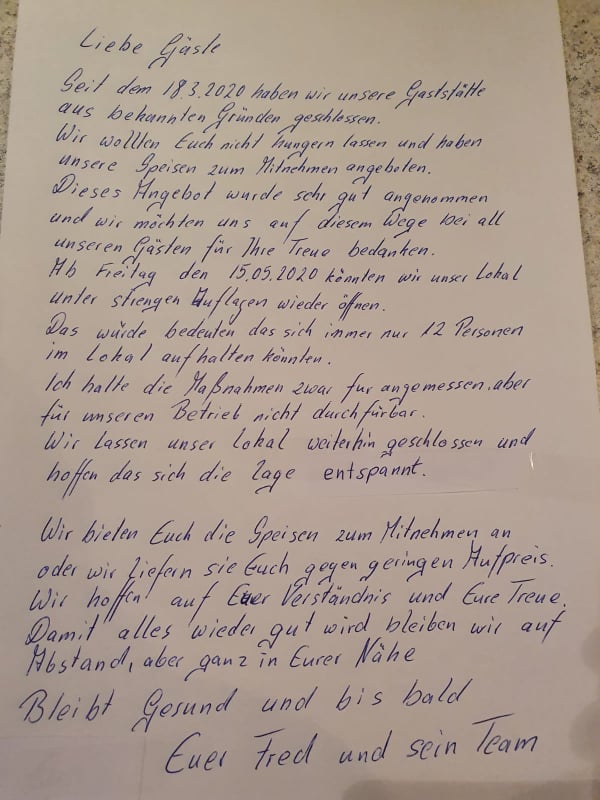 Liebe Gäste
Seit dem 18.3.2020 haben wir unsere Gaststätte
aus bekannten Gründen geschlossen.
Wir wollten Euch nicht hungern lassen und haben
unsere Speisen zum Mitnehmen angeboten.
Dieses Angebot wurde sehr gut angenommen
und wir möchten uns auf diesem Wege bei all
unseren Gästen für Ihre Treue bedanken.
Ab Freitag den 15.05.2020 könnten wir unser Lokal
unter strengen Auflagen wieder öffnen.
Das würde bedeuten das sich immer nur 12 Personen
im Lokal aufhalten könnten.
Ich halte die Maßnahmen zwar fur angemessen, aber
für unseren Betrieb nicht durchfürbar.
Wir lassen unser Lokal weiterhin geschlossen und
hoffen das sich die Lage entspannt.
Wir bieten Euch die Speisen zum Mitnehmen an
oder wir liefern sie Euch gegen geringen Aufpreis.
Wir hoffen auf Euer Verständnis und Eure Treue.
Damit alles wieder gut wird bleiben wir auf
Abstand, aber ganz in Eurer Nähe
Bleibt Gesund und bis bald
Euer Fred und sein Team